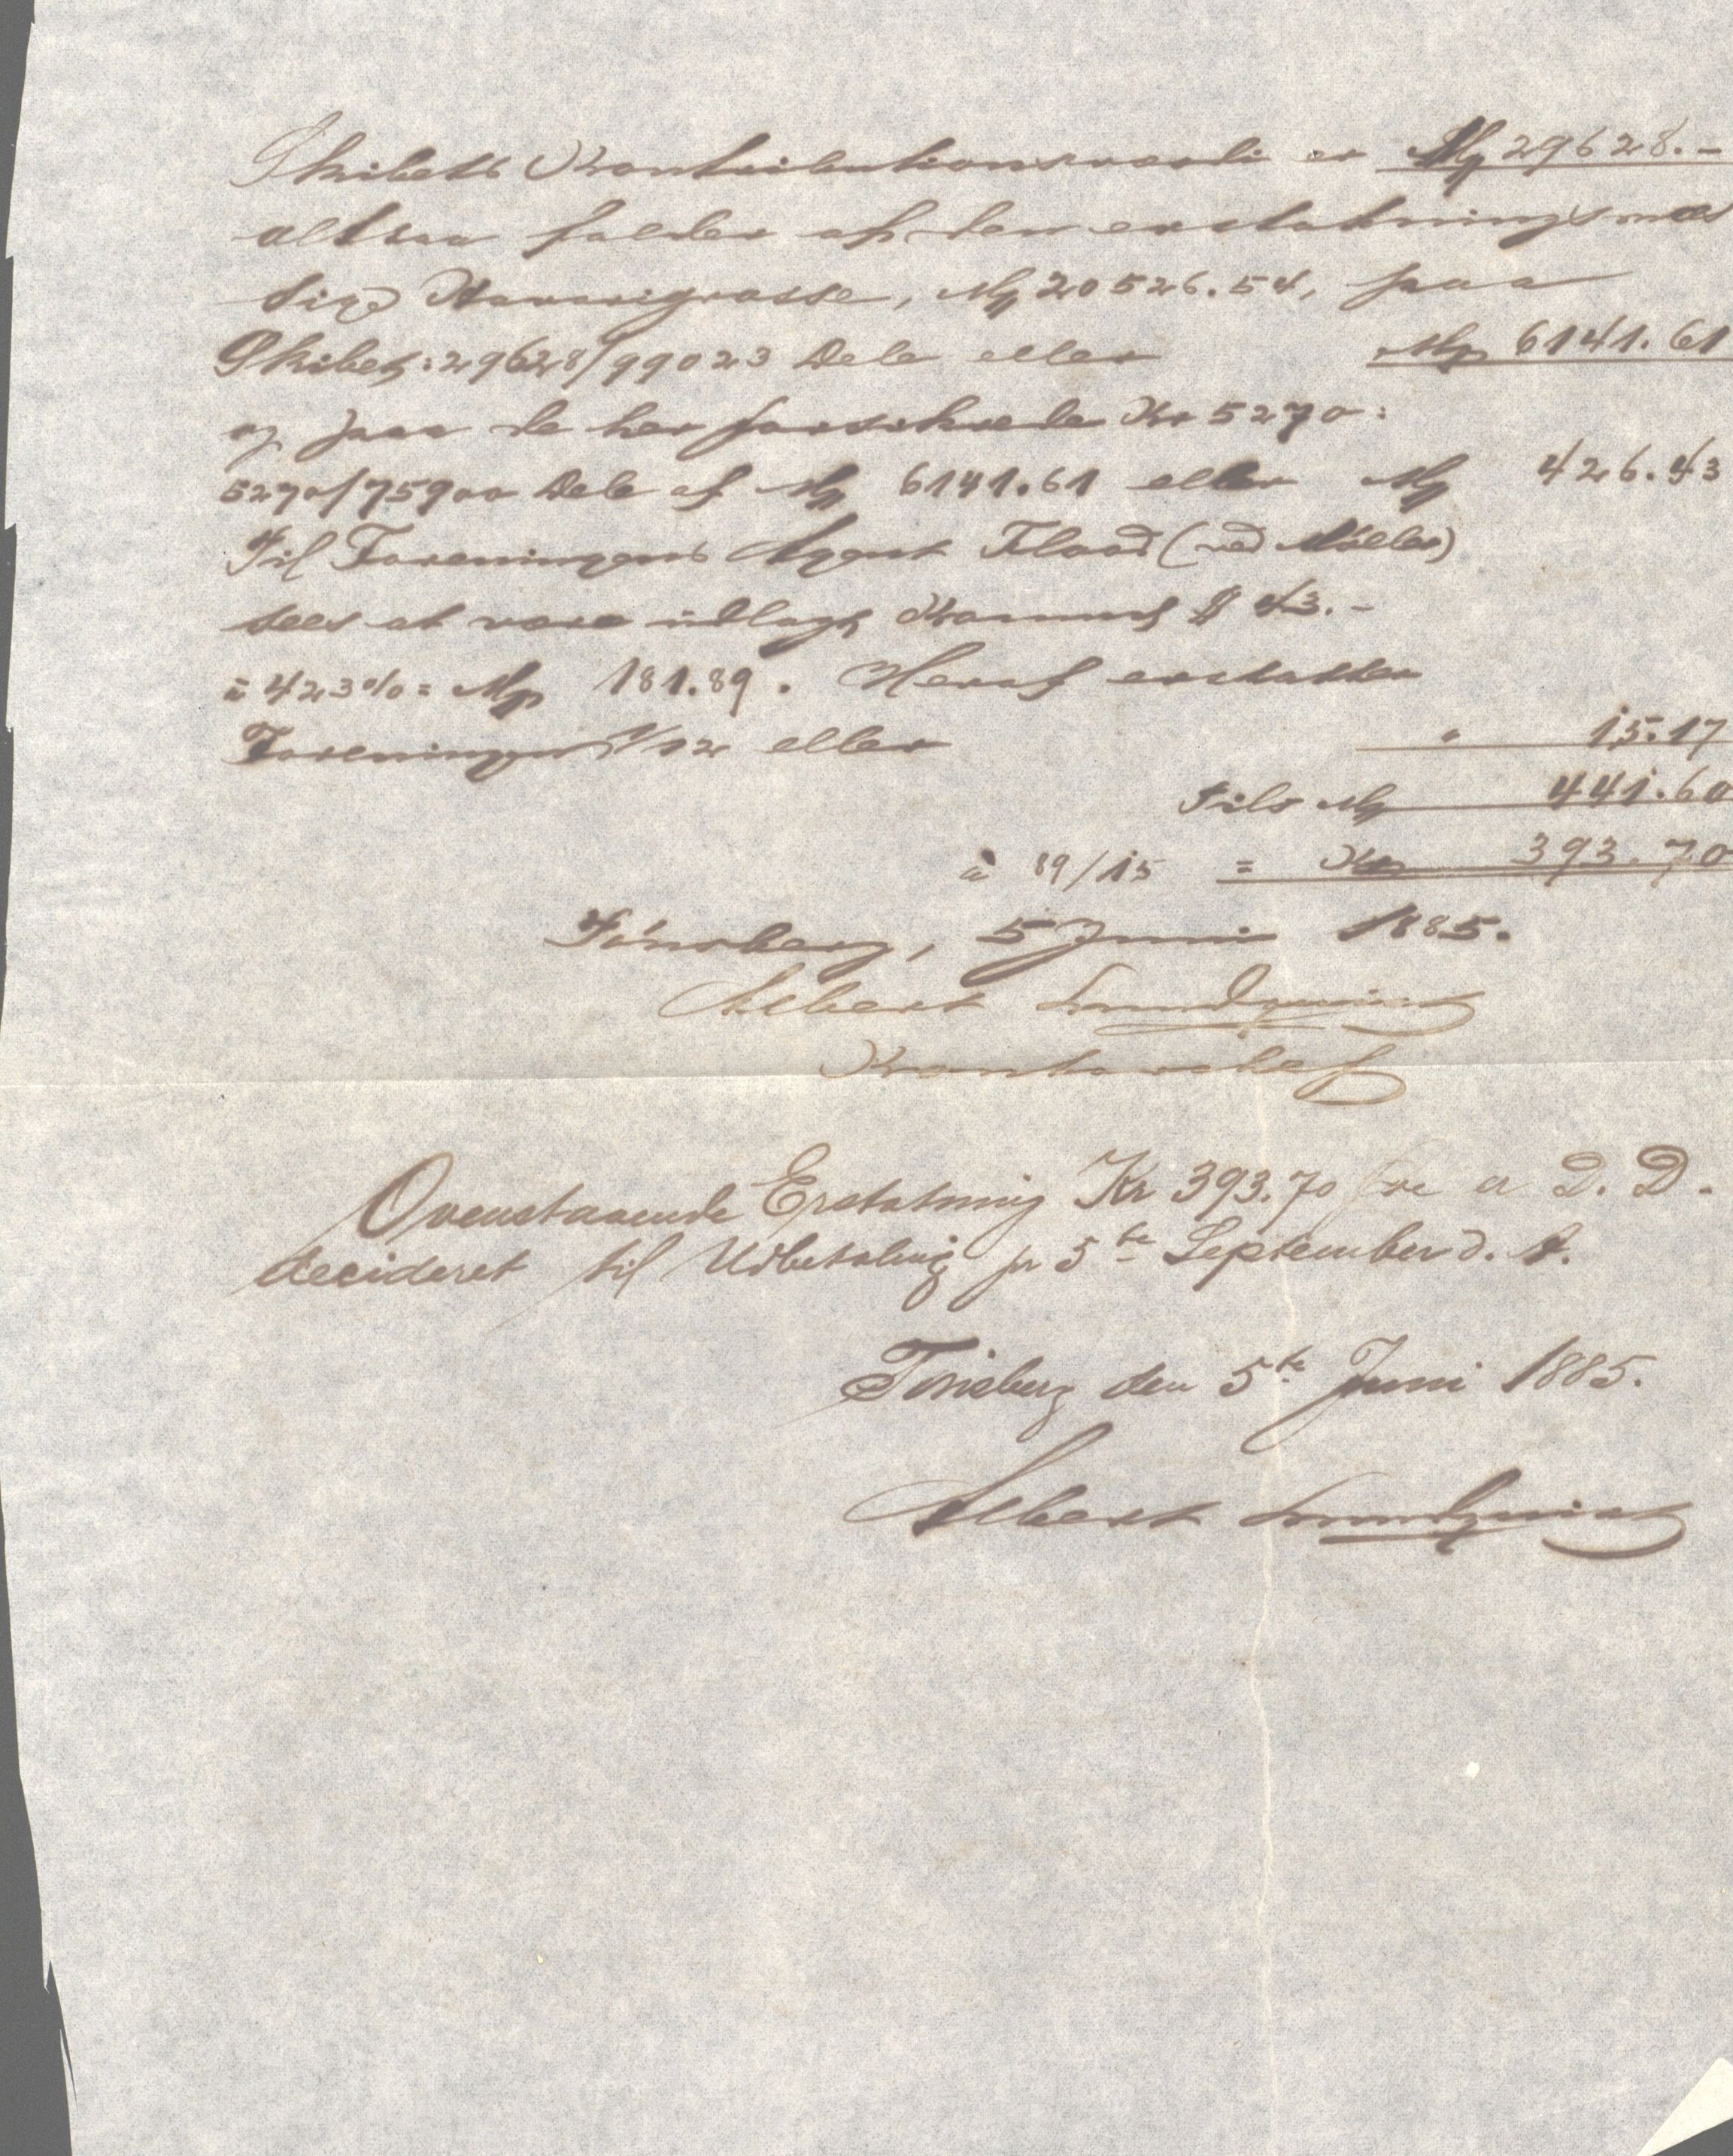 Skibets Kontributionsværdi er Mk 29628.-
altsaa falder af den erstatningsmæs
sige Havarigrosse, Mk 20526.54, paa
Skibet: 29628/99023 Dele eller Mk 6141.61
og paa de her forsikrede Kr 5270:
5270/75900 Dele af Mk 6141.61 eller Mk 426.43
Til Foreningens Agent Flood (ved Möller)
sees at være udlagt $ 43.-
à 423% = Mk 181.89. Heraf erstatter
Foreningen 1/12 eller " 15.17
Tils Mk 441.60
à 89/15 = Kr 393.70
Tönsberg, 5 Juni 1885.
Albert Lundquist
Kontorchef
Ovenstaaende Erstatning Kr 393.70 er D. D.
decideret til Udbetaling pr 5te September d. A.
Tönsberg den 5te Juni 1885.
Albert Lundquist